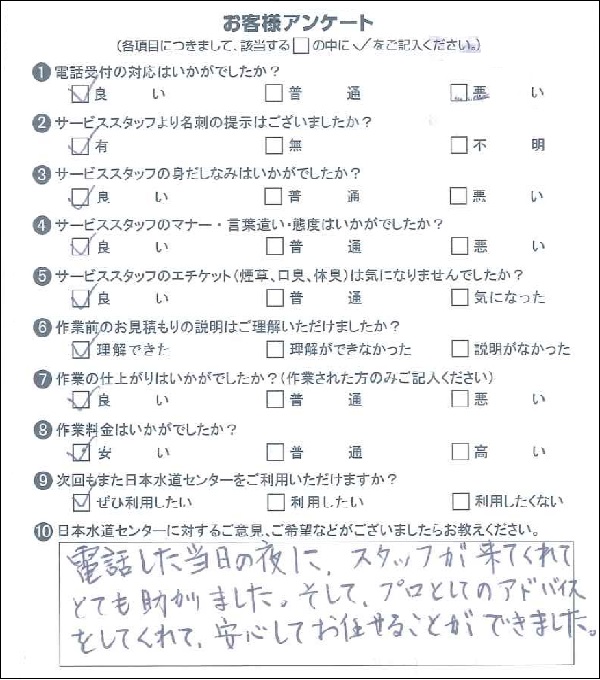 お客様アンケート
(各項目につきまして、該当する□の中に✓をご記入ください。)
❶ 電話受付の対応はいかがでしたか?
☑ 良い □ 普通 □ 悪い
❷ サービススタッフより名刺の提示はございましたか?
☑ 有 □ 無 □ 不明
❸ サービススタッフの身だしなみはいかがでしたか?
☑ 良い □ 普通 □ 悪い
❹ サービススタッフのマナー・言葉遣い・態度はいかがでしたか?
☑ 良い □ 普通 □ 悪い
❺ サービススタッフのエチケット(煙草、口臭、体臭)は気になりませんでしたか?
☑ 良い □ 普通 □ 気になった
❻ 作業前のお見積もりの説明はご理解いただけましたか?
☑ 理解できた □ 理解ができなかった □ 説明がなかった
❼ 作業の仕上がりはいかがでしたか?(作業された方のみご記入ください)
☑ 良い □ 普通 □ 悪い
❽ 作業料金はいかがでしたか?
☑ 安い □ 普通 □ 高い
❾ 次回もまた日本水道センターをご利用いただけますか?
☑ ぜひ利用したい □ 利用したい □ 利用したくない
❿ 日本水道センターに対するご意見、ご希望などがございましたらお教えください。
電話した当日の夜に、スタッフが来てくれて
とても助かりました。そして、プロとしてのアドバイス
をしてくれて、安心してお任せることができました。